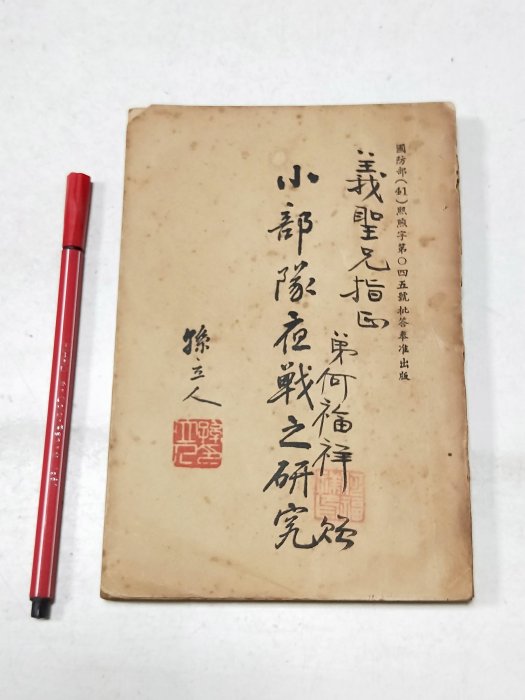 國防部(41)照煦字第〇四五號批答奉准出版
義聖兄指正
弟何福祥贈
小部隊夜戰之研究
孫立人
孫立人